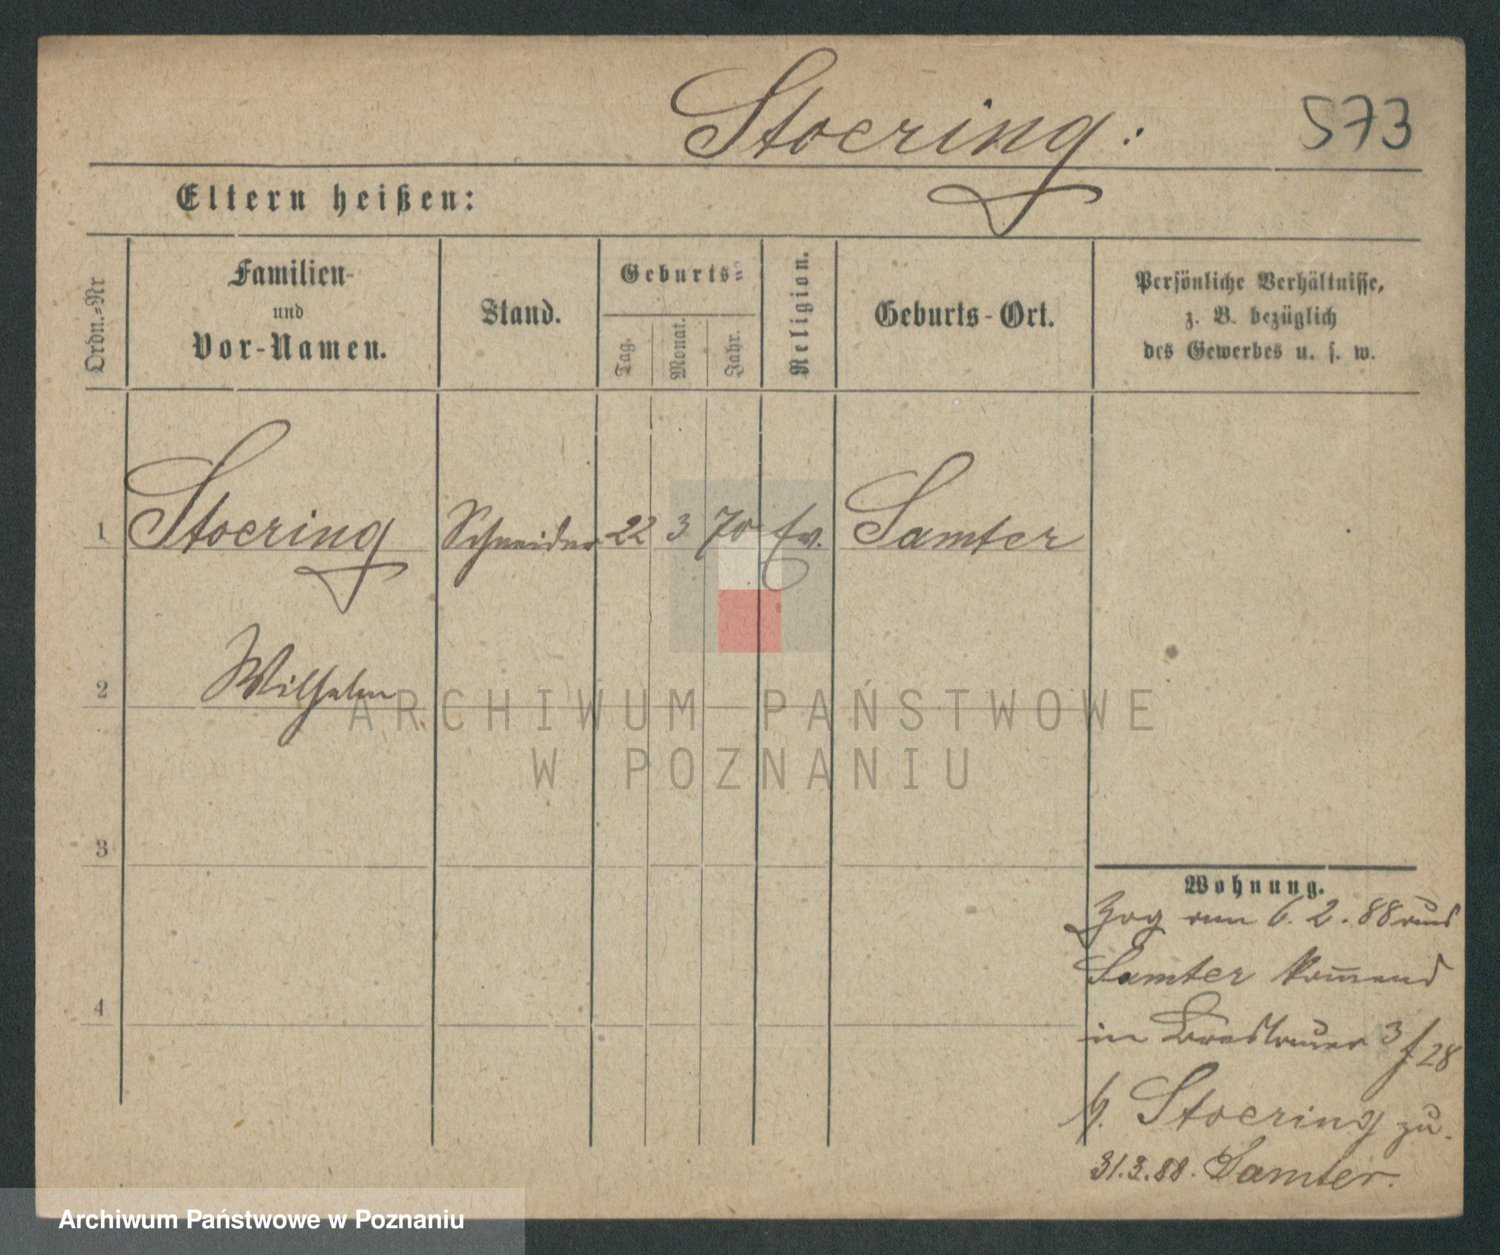 Stoering:
573
Eltern heißen:
Ordn.-Nr
Familien-
und
Vor-Namen.
Stand.
Geburts-
Tag.
Monat.
Jahr.
Religion.
Geburts-Ort.
Persönliche Verhältnisse,
z. B. bezüglich
des Gewerbes u. s. w.
1 Stoering Schneider 22 3 70 Ev. Samter
2 Wilhelm
ARCHIWUM PAŃSTWOWE
W POZNANIU
3
4
Wohnung.
Zog am 6. 2. 88 aus
Samter kom̅end
in Breslauer 3 28
b. Stoering zu.
31.3.88. Samter.
Archiwum Państwowe w Poznaniu